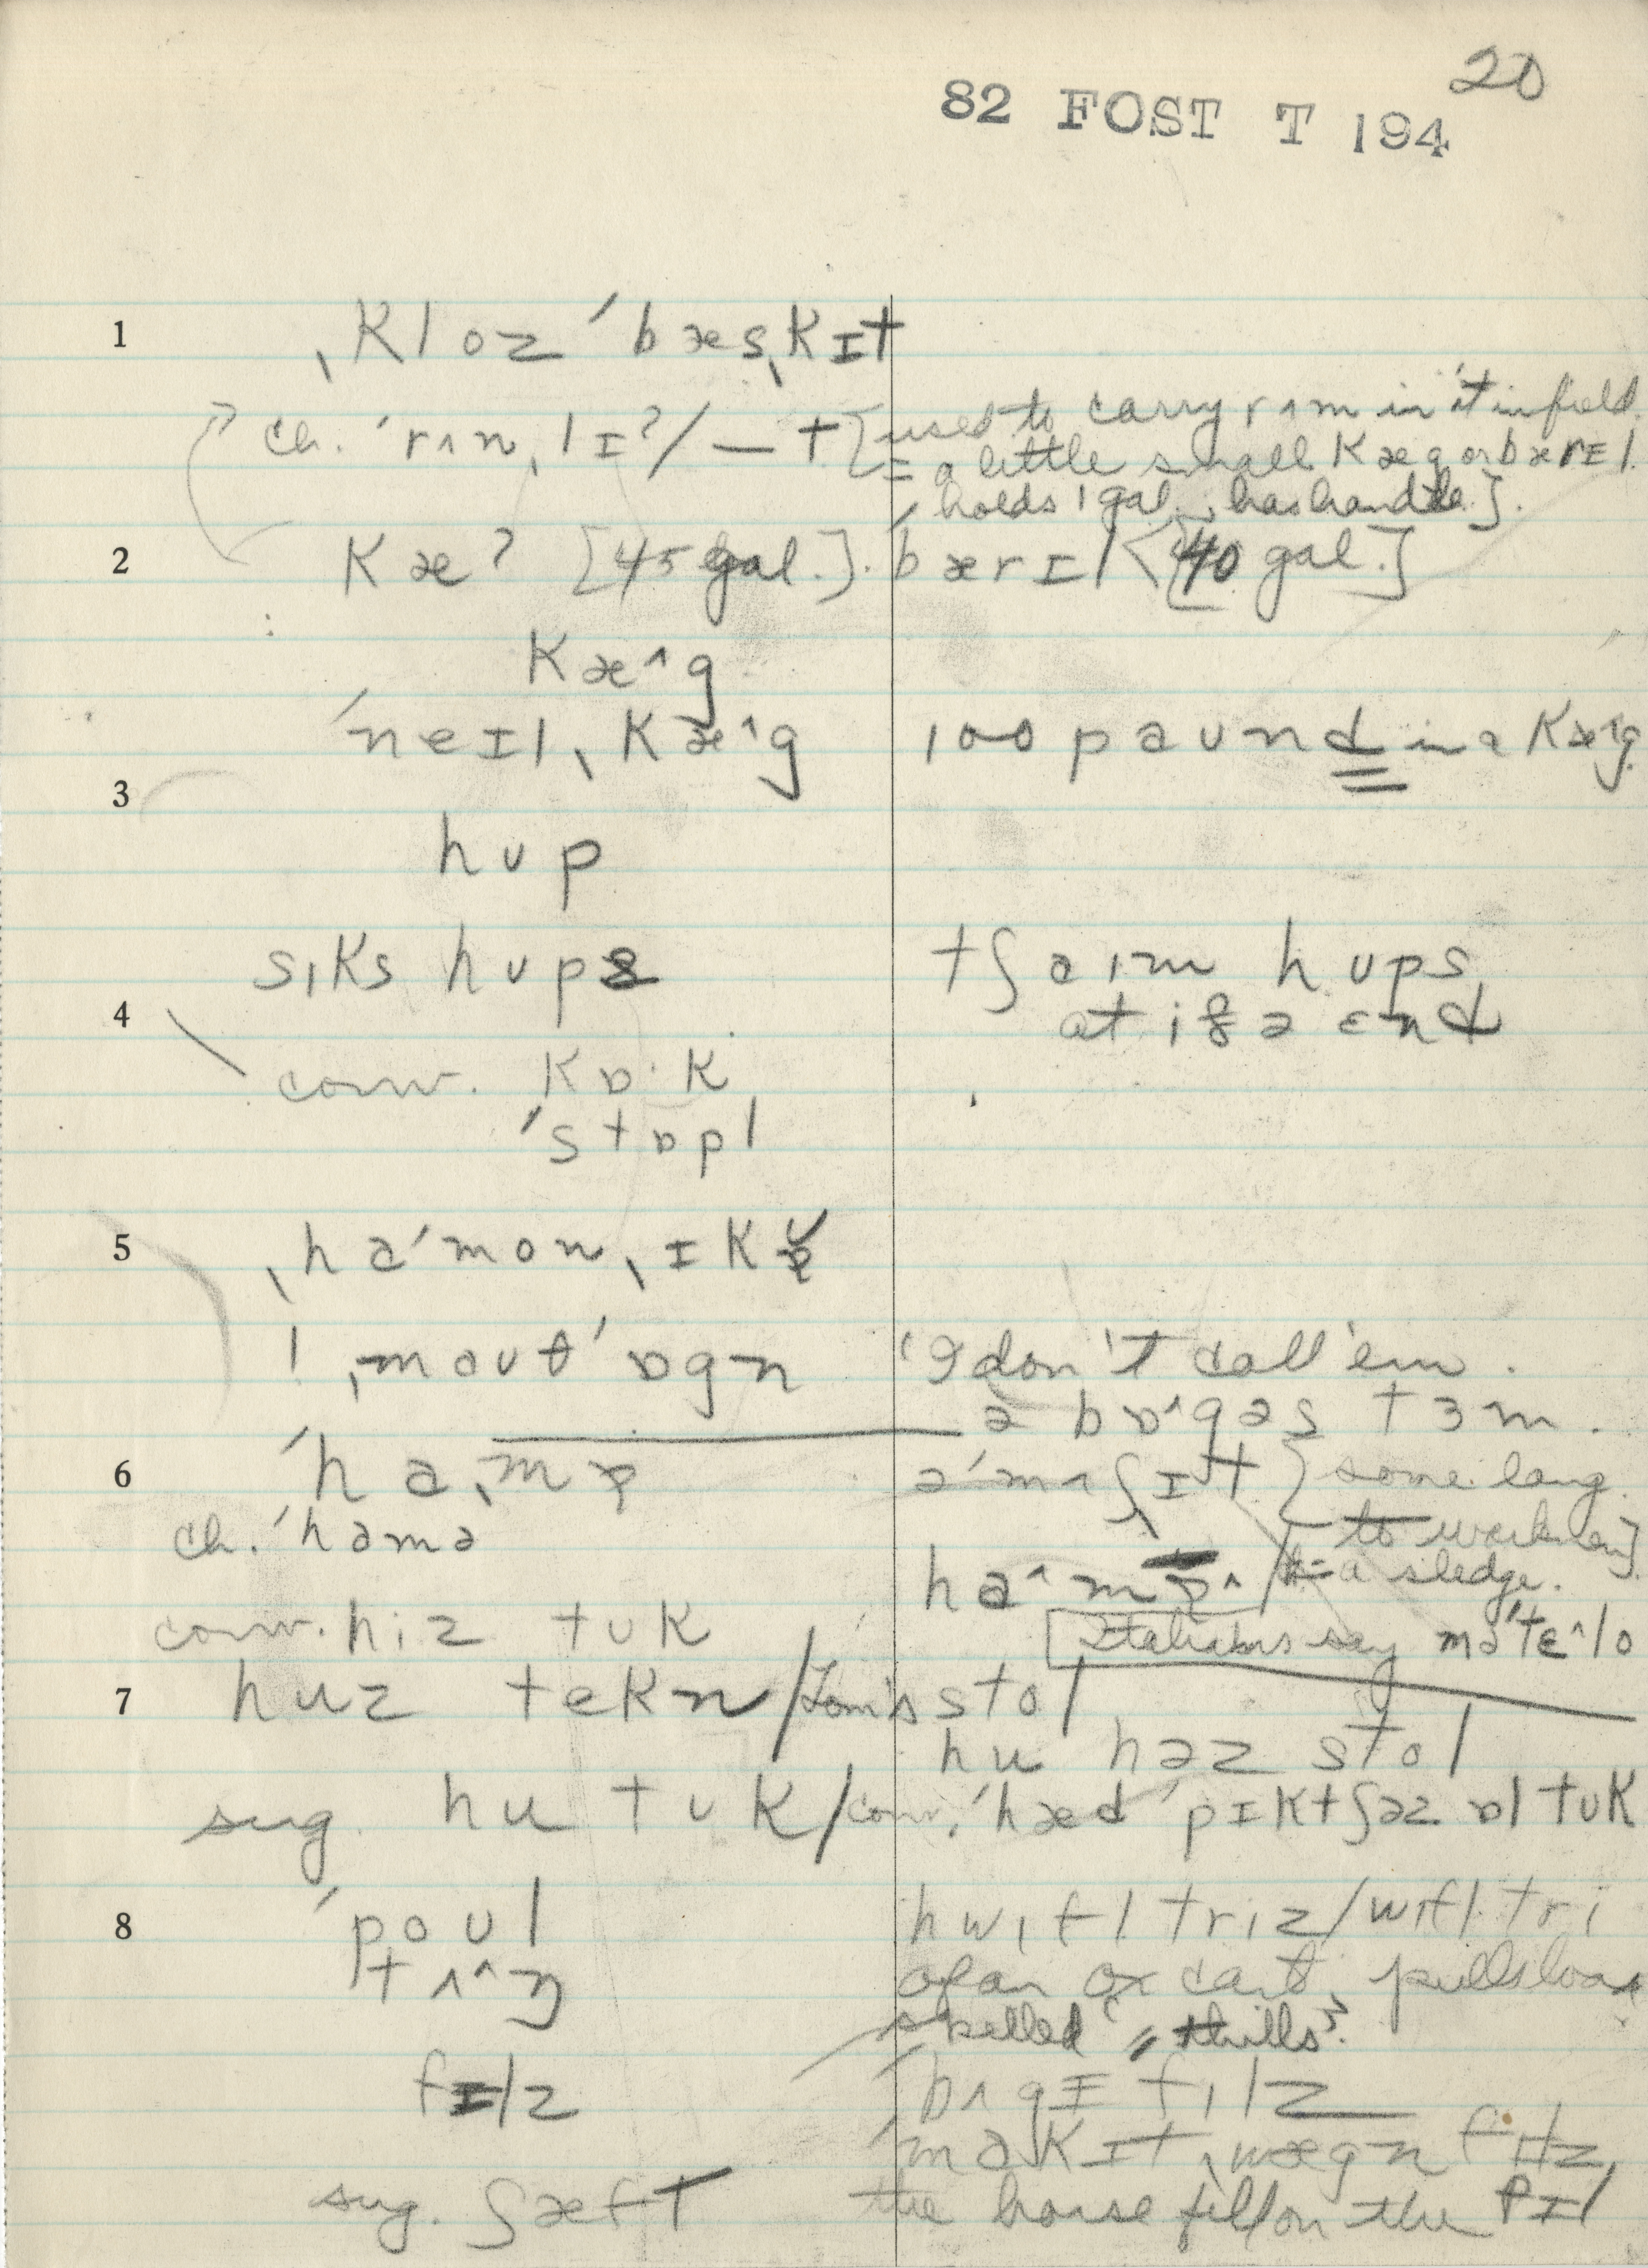 20
82 FOST T 194
1 ˌkloz ˈbæsˌkɪt
ch. ˈrʌnˌlɪʔ/ — t [used to carry rʌm in it in field.
= a little small kæg or bærɪl
holds 1 gal., has handle].
2 kæʔ [45 gal.]. ˈbærɪl < [40 gal.]
kæ^g
ˈneɪlˌkæ^g 100 paʊnd in a kæ^g
3
hʊp
siks hʊps tʃaim hʊps
4 at iðə ɛnd
conv. kɒ·k
ˈstɒpl
5 ˌhaˈmonˌɪkɚ
! ˌmaʊθˈɒgn 'I don't call 'em.
ə bɒ^gəs tɜm.
6 ˈhaˌmɚ əˈmʌʃɪt [some lang.
ch. ˈhamə to workmen]
ha^mɚ^ / = a sledge.
conv. hiz tʊk Italians say məˈtɛ^lo
7 huz tekn / Tom's stol
hu həz stol
sug. hu tʊk / conv. ˈhæd ˈpɪktʃəz ɒl tʊk
8 ˈpoʊl hwifl triz / wifl tri
tʌ^ŋ of an ox cart, pulls load
spelled "thills".
fɪlz ˈbʌgɪ filz
ˈmakɪtˌwægn filz
sug. ʃæft the horse fell on the fɪl